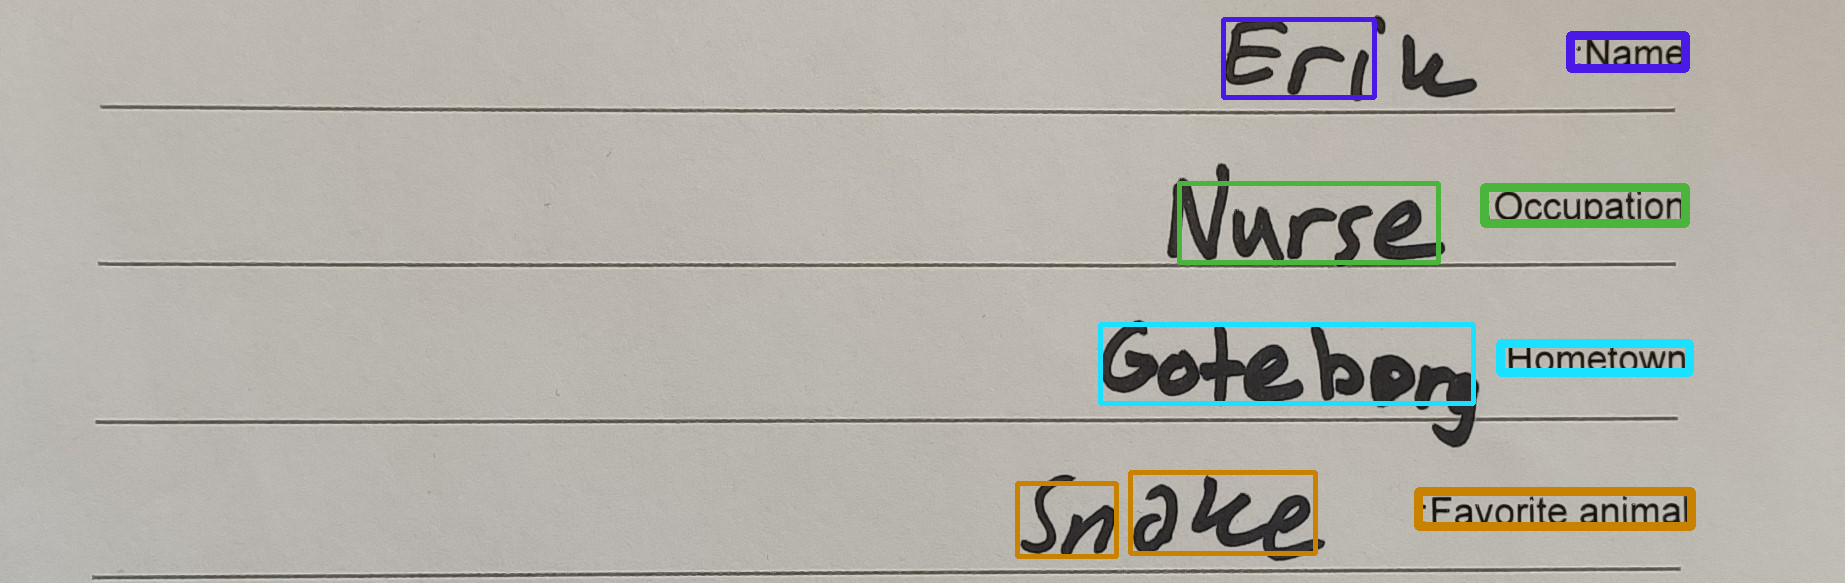 Erik :Name
Nurse Occupation
Goteborg Hometown
Snake :Favorite animal